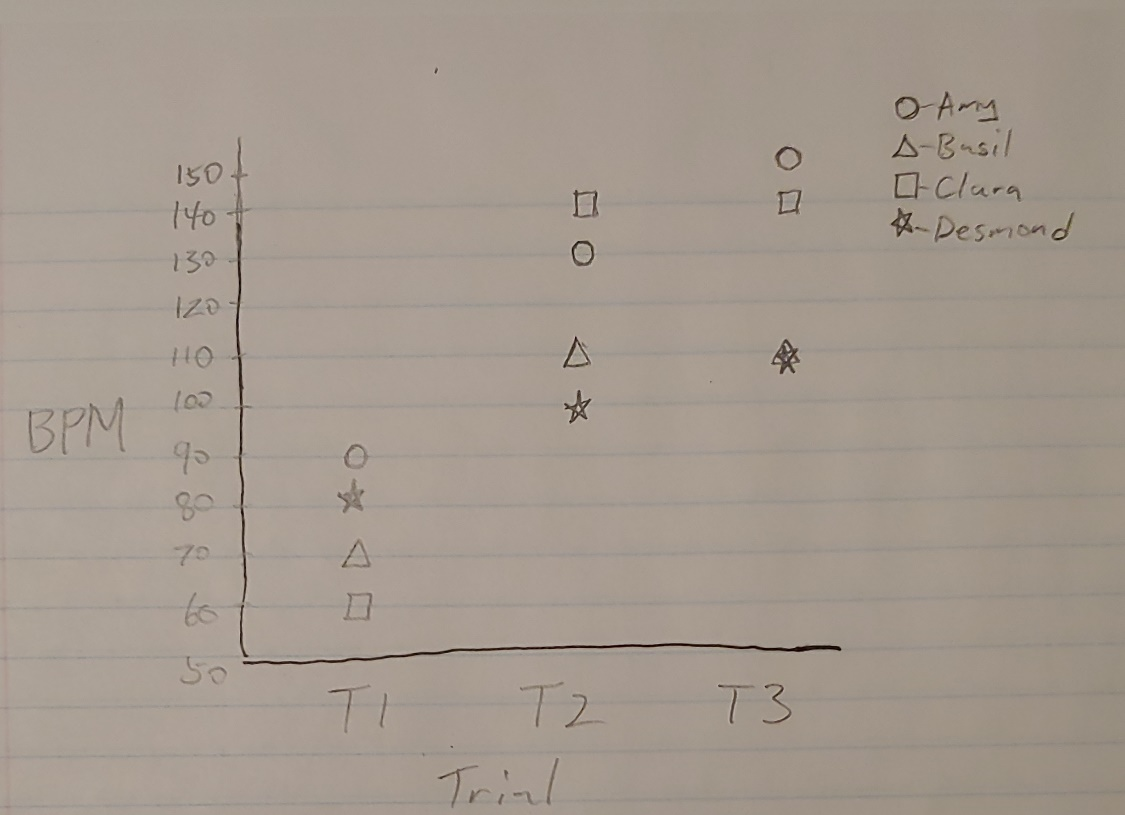 O-Amy
△-Basil
□-Clara
☆-Desmond
150
140
130
120
110
100
90
80
70
60
50
BPM
T1 T2 T3
Trial